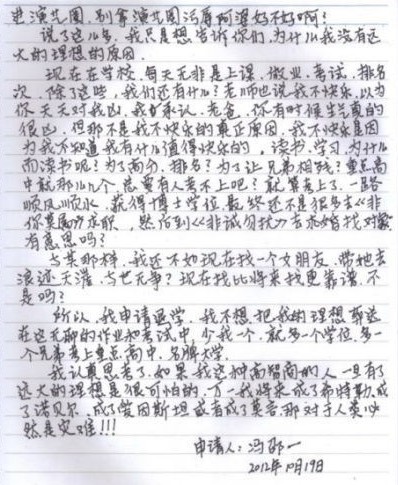 进演艺圈，别拿演艺圈污辱阿邵好不好啊？
说了这么多，我只是想告诉你们，为什么我没有远
大的理想的原因。
现在在学校，每天无非是上课、做业、考试、排名
次，除了这些，我们还有什么？老师也说我不快乐，以为
你天天对我凶，我承认，老爸，你有时候生气真的
很凶，但那不是我不快乐的真正原因，我不快乐是因
为我不知道我有什么值得快乐的，读书，学习，为什么
而读书呢？为了高分，排名？为了让兄弟相残？重点高
中就那么几个，总要有人考不上吧？就算考上了，一路
顺风顺水，获得博士学位最终还不是很多去《非
你莫属》应职，然后到《非诚勿扰》去亮烙找对象
有意思吗？
与其那样，我还不如现在找一个女朋友，带她去
浪迹天涯，与世无争？现在找比将来找更靠谱，不
是吗？
所以，我申请退学，我不想把我的理想葬送
在这无聊的作业和考试中，少我一个，就多一个学位，多一
个兄弟考上重点高中，名牌大学。
我认真思考了，如果我这种高智商的人一旦有了
远大的理想是很可怕的，万一我将来成了希特勒，成
了诺贝尔，成了爱因斯坦或者成了莫言，那对于人类必
然是灾难!!!
申请人：冯邵一
2012年10月19日